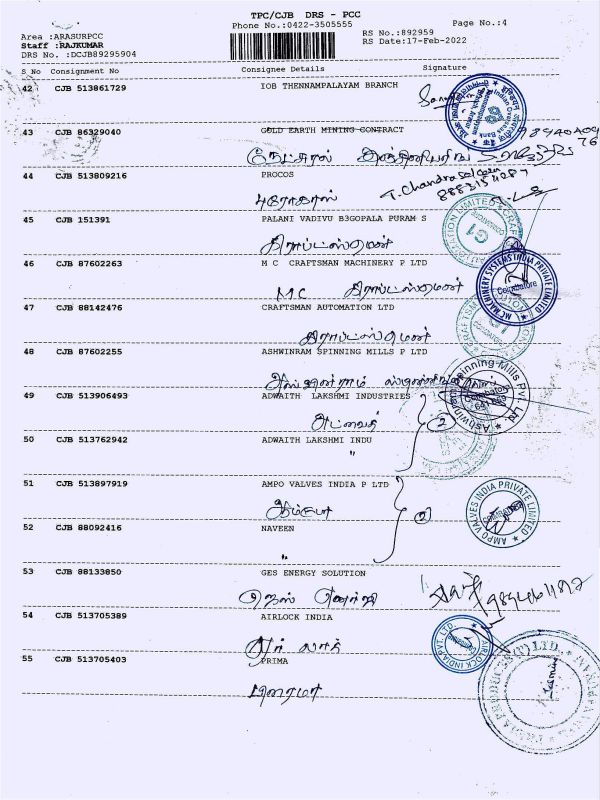 TPC/CJB DRS - PCC
Phone No.:0422-3505555
Page No.:4
Area :ARASURPCC
RS No.:892959
Staff :RAJKUMAR
RS Date:17-Feb-2022
DRS No. :DCJB89295904
S No Consignment No Consignee Details Signature
42 CJB 513861729 IOB THENNAMPALAYAM BRANCH
43 CJB 86329040 GOLD EARTH MINING CONTRACT
44 CJB 513809216 PROCOS
T. Chandrasekaran
புரோகாஸ்
45 CJB 151391 PALANI VADIVU B3GOPALA PURAM S
கிராப்ட்ஸ்மென்
46 CJB 87602263 M C CRAFTSMAN MACHINERY P LTD
MC MACHINERY SYSTEMS INDIA PRIVATE LIMITED
Coimbatore
MC கிராப்ட்ஸ்மென்
47 CJB 88142476 CRAFTSMAN AUTOMATION LTD
கிராப்ட்ஸ்மென்
48 CJB 87602255 ASHWINRAM SPINNING MILLS P LTD
Ashwinram Spinning Mills Pvt. Ltd.
Coimbatore
49 CJB 513906493 ADWAITH LAKSHMI INDUSTRIES
அட்வைத் 2
50 CJB 513762942 ADWAITH LAKSHMI INDU
"
51 CJB 513897919 AMPO VALVES INDIA P LTD
AMPO VALVES INDIA PRIVATE LIMITED
52 CJB 88092416 NAVEEN
"
53 CJB 88133850 GES ENERGY SOLUTION
ஜெஸ் எனர்ஜி
54 CJB 513705389 AIRLOCK INDIA
AIRLOCK INDIA PVT. LTD.
ஏர் லாக்
55 CJB 513705403 PRIMA
பிரைமா